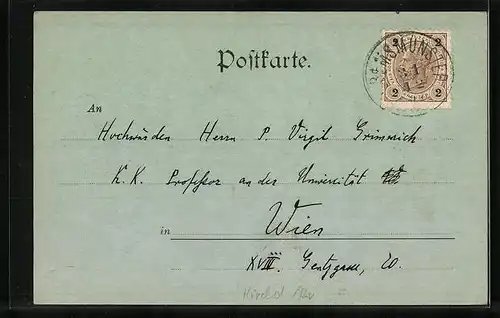 Postkarte.
2 2
KREMSMÜNSTER
2 2
An
Hochwürden Herrn P. Virgil Grimmich
K. K. Professor an der Universität
in Wien
XVIII. Gentzgasse, 20.